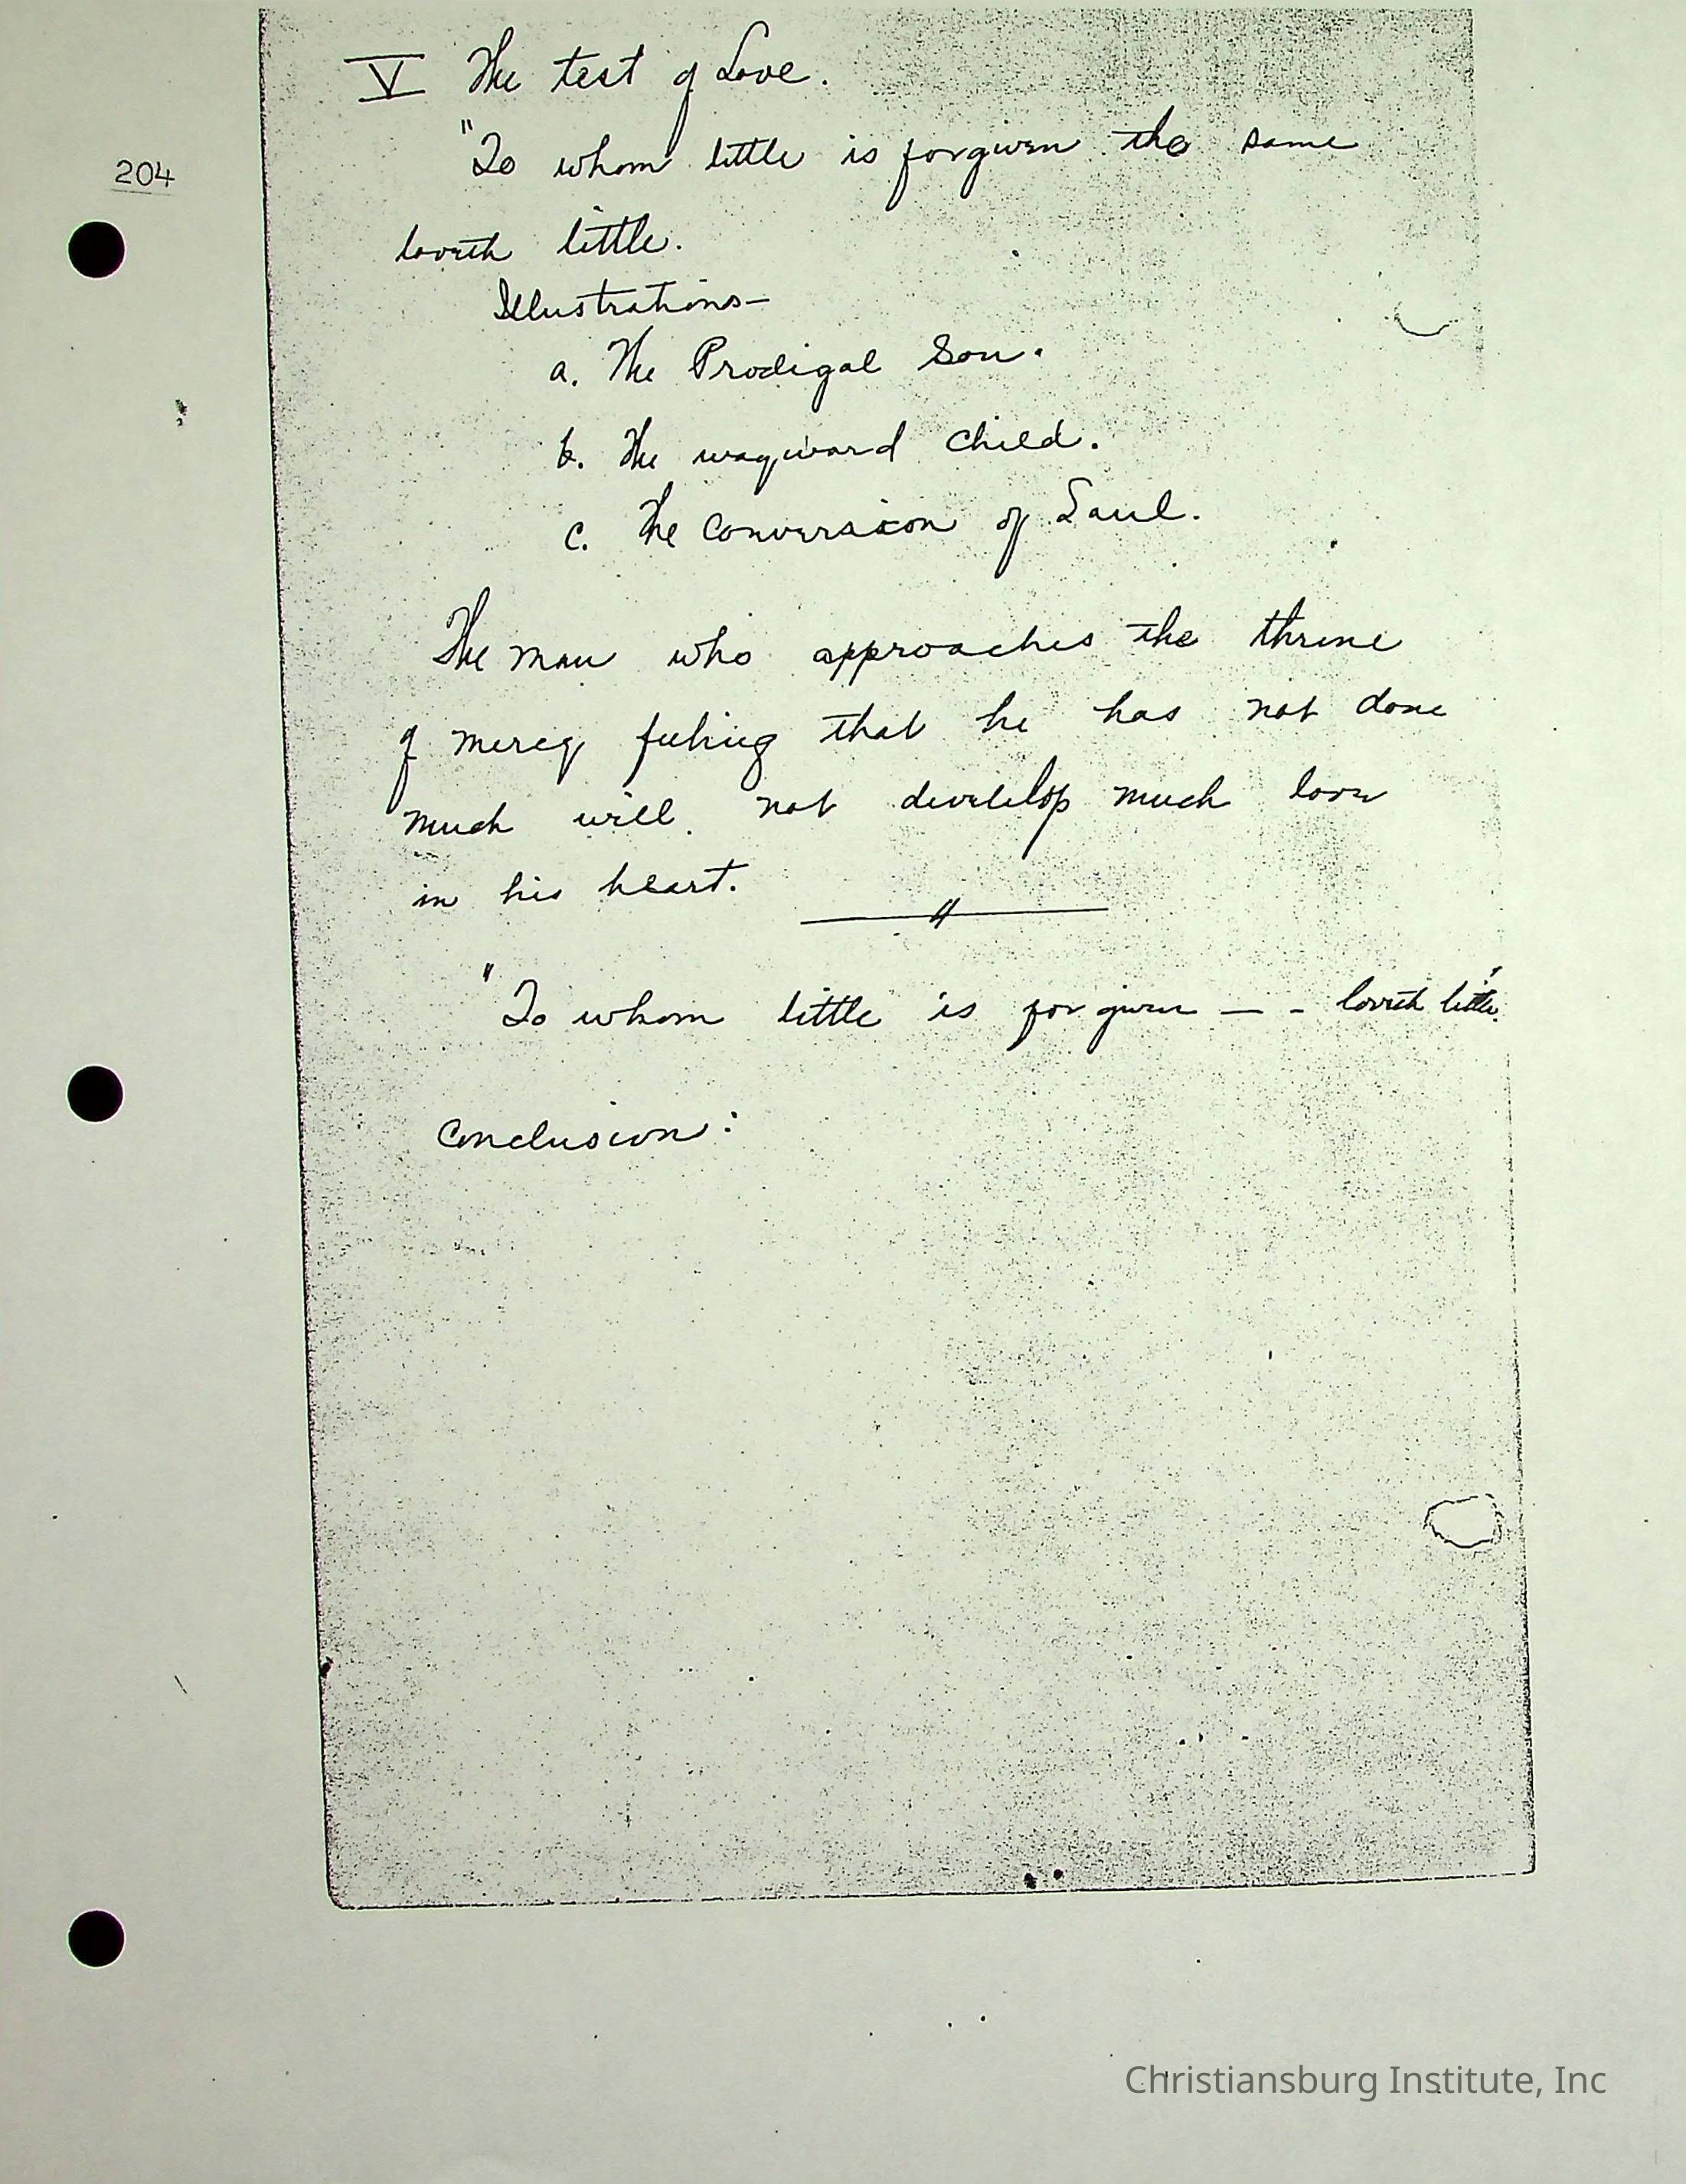 204
V The test of Love.
"To whom little is forgiven the same
loveth little.
Illustrations—
a. The Prodigal Son.
b. The wayward child.
c. The Conversion of Saul.
The man who approaches the throne
of mercy feeling that he has not done
much will not develop much love
in his heart.
"To whom little is forgiven — - loveth little."
Conclusion:
Christiansburg Institute, Inc